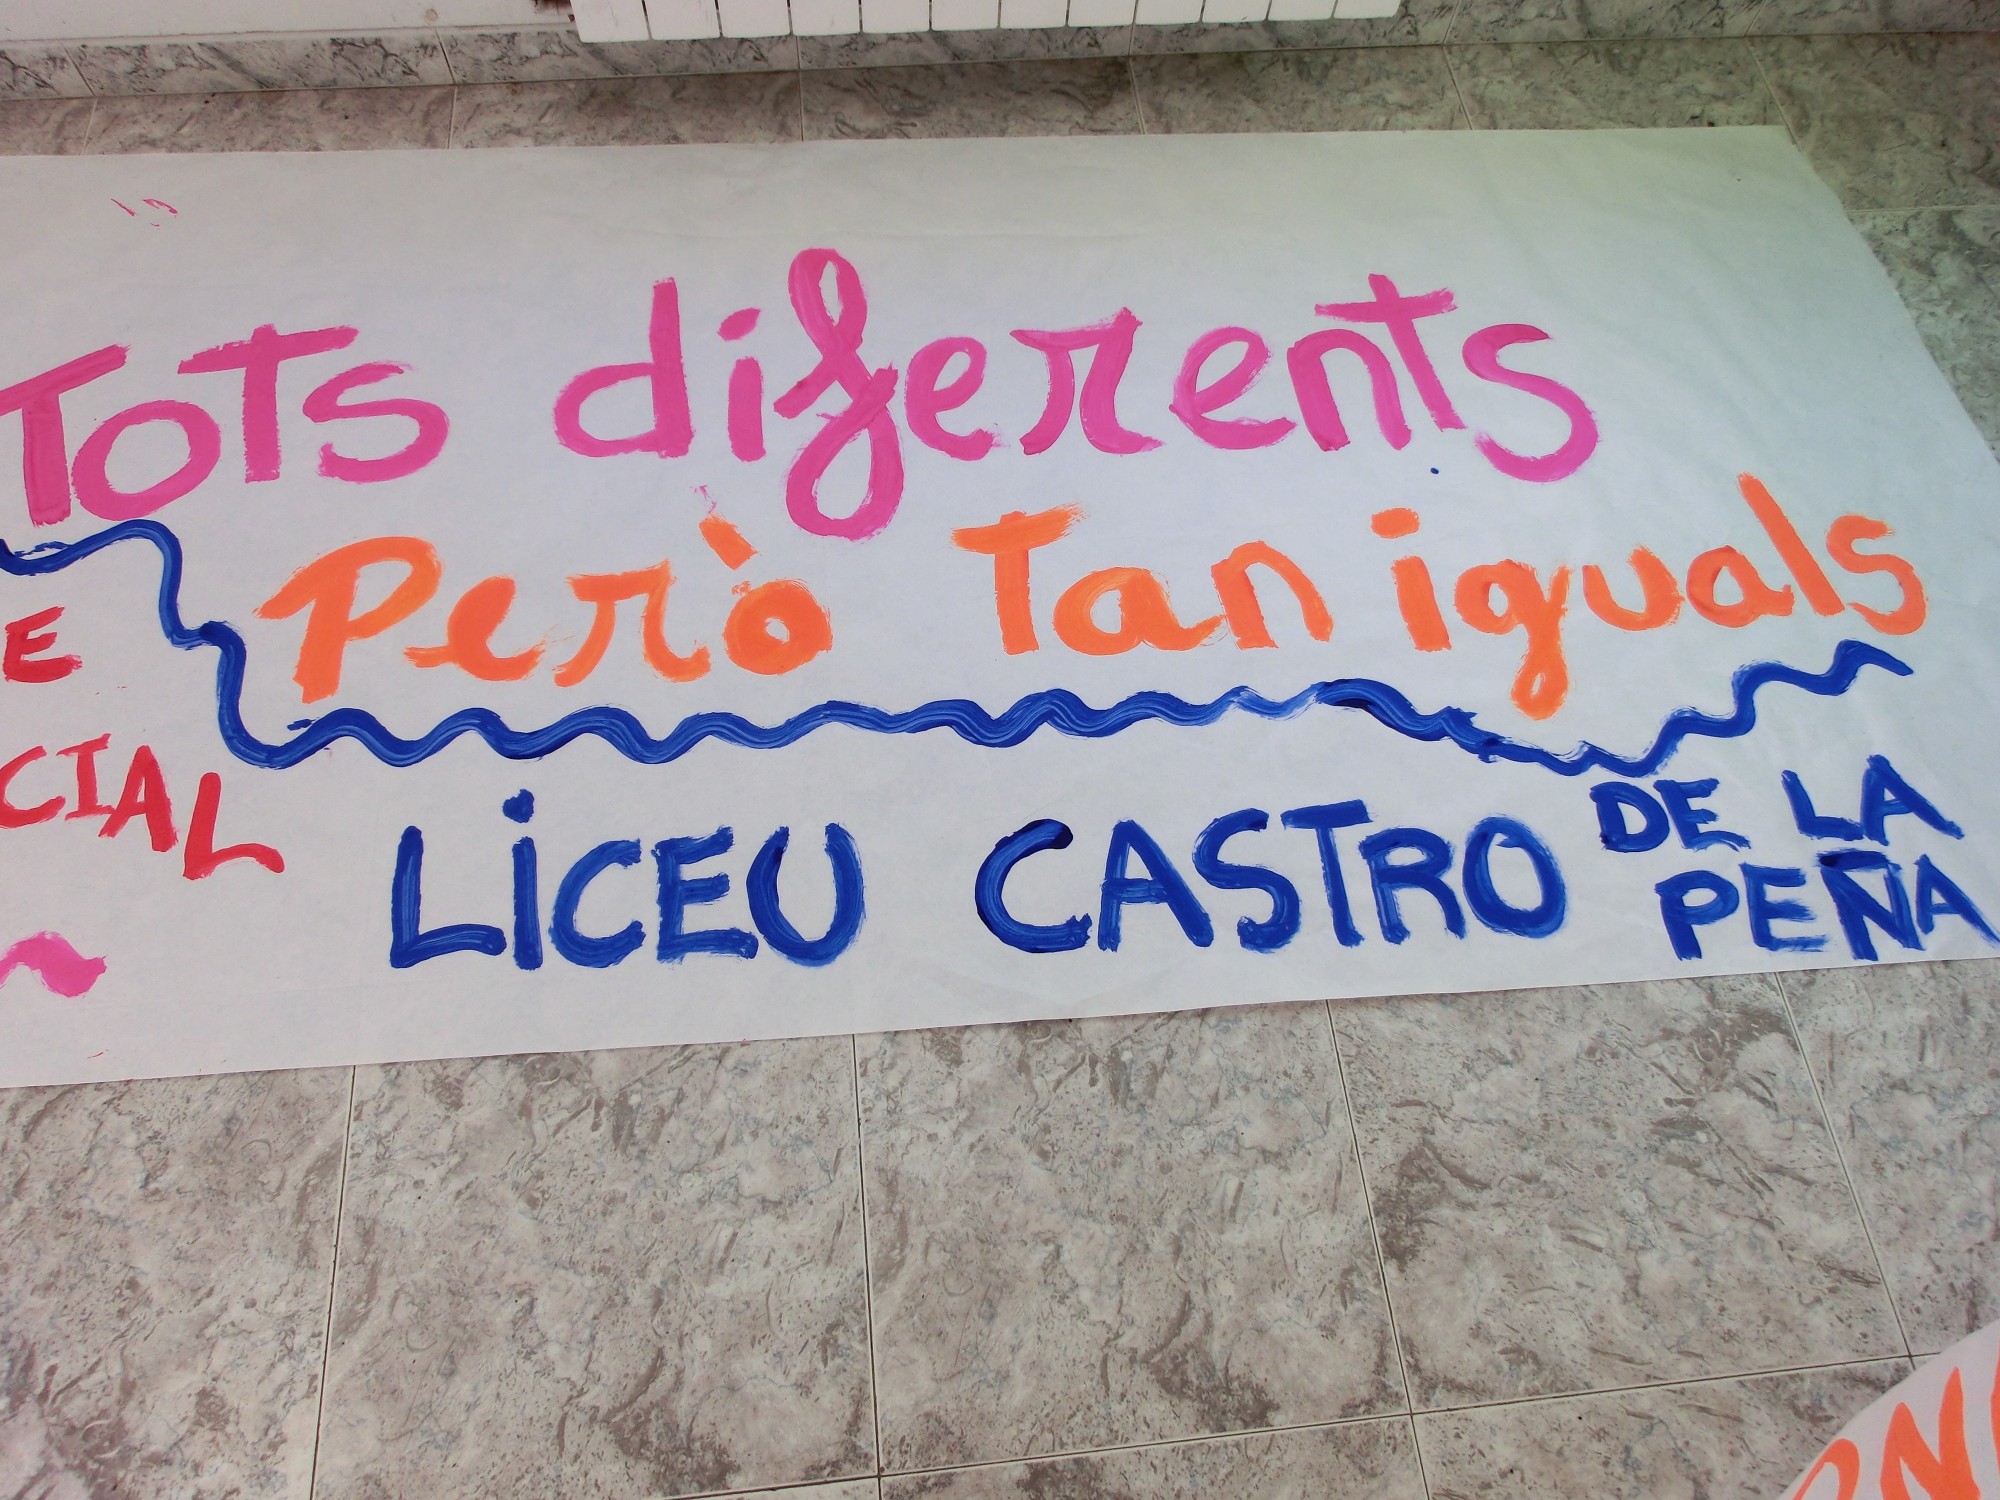 Tots diferents
Però Tan iguals
E
CIAL
LiCEU CASTRO DE LA PEÑA